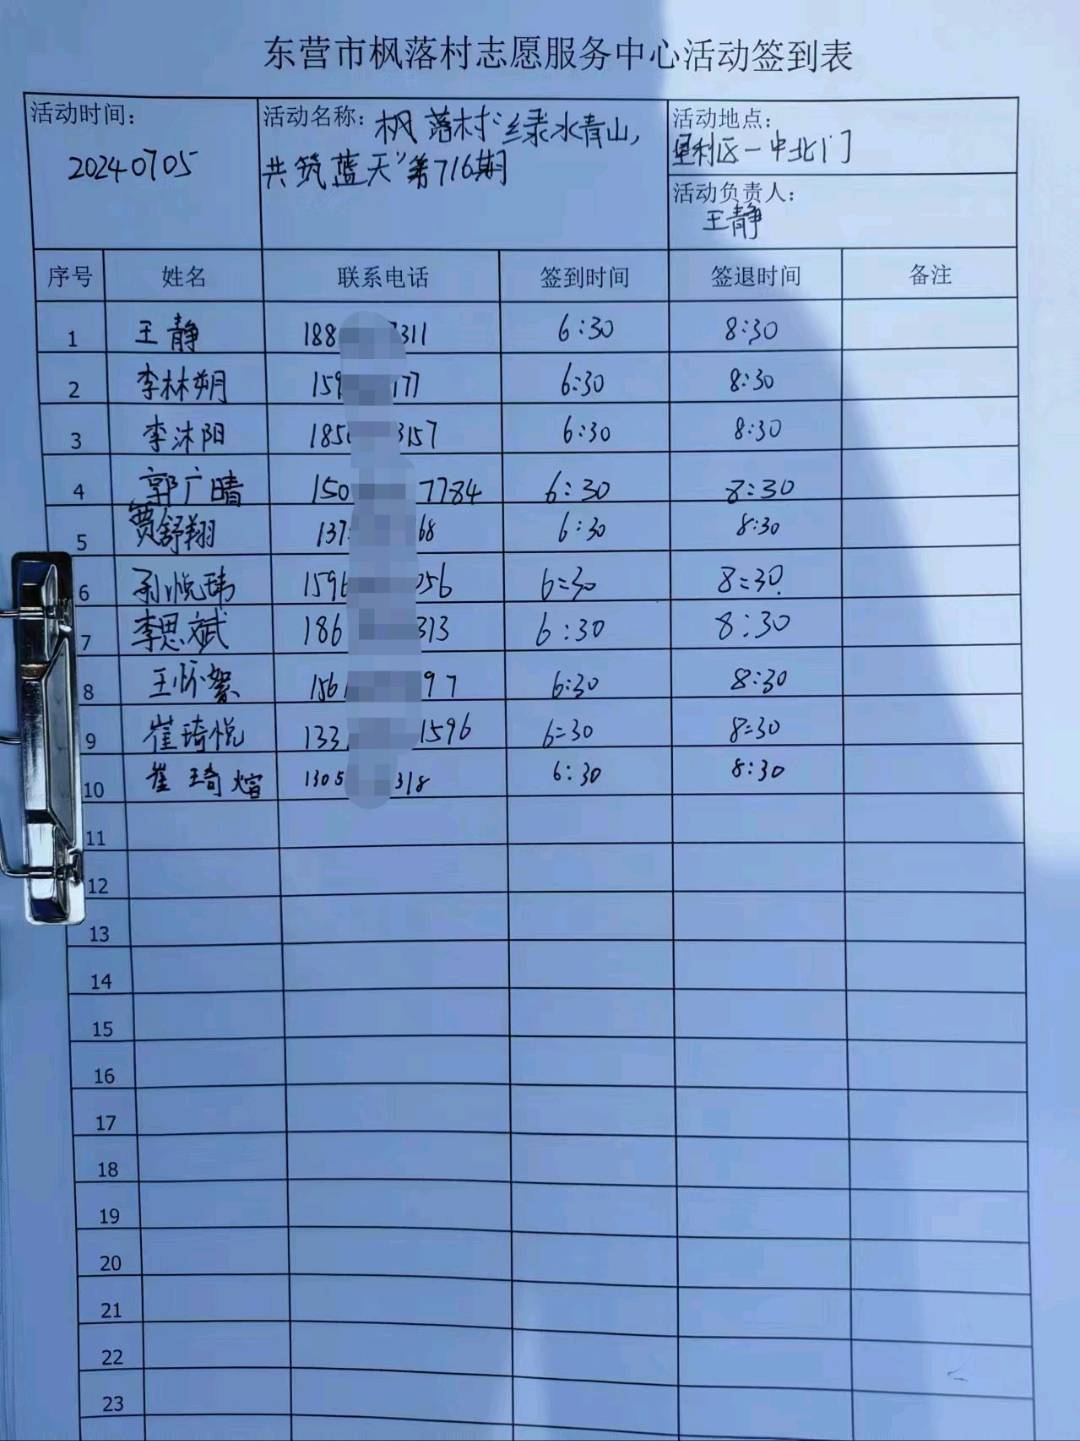 东营市枫落村志愿服务中心活动签到表
活动时间: 20240705
活动名称: 枫落村“绿水青山,
共筑蓝天”第716期
活动地点:
垦利区一中北门
活动负责人:
王静
序号 姓名 联系电话 签到时间 签退时间 备注
1 王静 188 311 6:30 8:30
2 李林朔 159 177 6:30 8:30
3 李沐阳 185 3157 6:30 8:30
4 郭广晴 150 7784 6:30 8:30
5 贾舒翔 137 68 6:30 8:30
6 孙悦玮 1596 056 6:30 8:30
7 李思斌 186 313 6:30 8:30
8 王怀絮 156 97 6:30 8:30
9 崔琦悦 133 1596 6:30 8:30
10 崔琦熠 1305 318 6:30 8:30
11
12
13
14
15
16
17
18
19
20
21
22
23